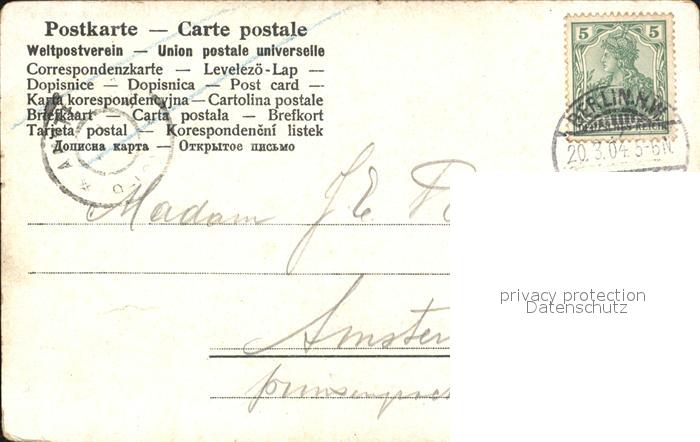 Postkarte — Carte postale
Weltpostverein — Union postale universelle
Correspondenzkarte — Levelező-Lap —
Dopisnice — Dopisnica — Post card —
Karta korespondencyjna — Cartolina postale
Briefkaart — Carta postala — Brefkort
Tarjeta postal — Korespondenční listek
Дописна карта — Открытое письмо
5 5
BERLIN. N.W.
20.3.04. 5-6N.
Madam J E
privacy protection
Datenschutz
Amster
prinsengrac